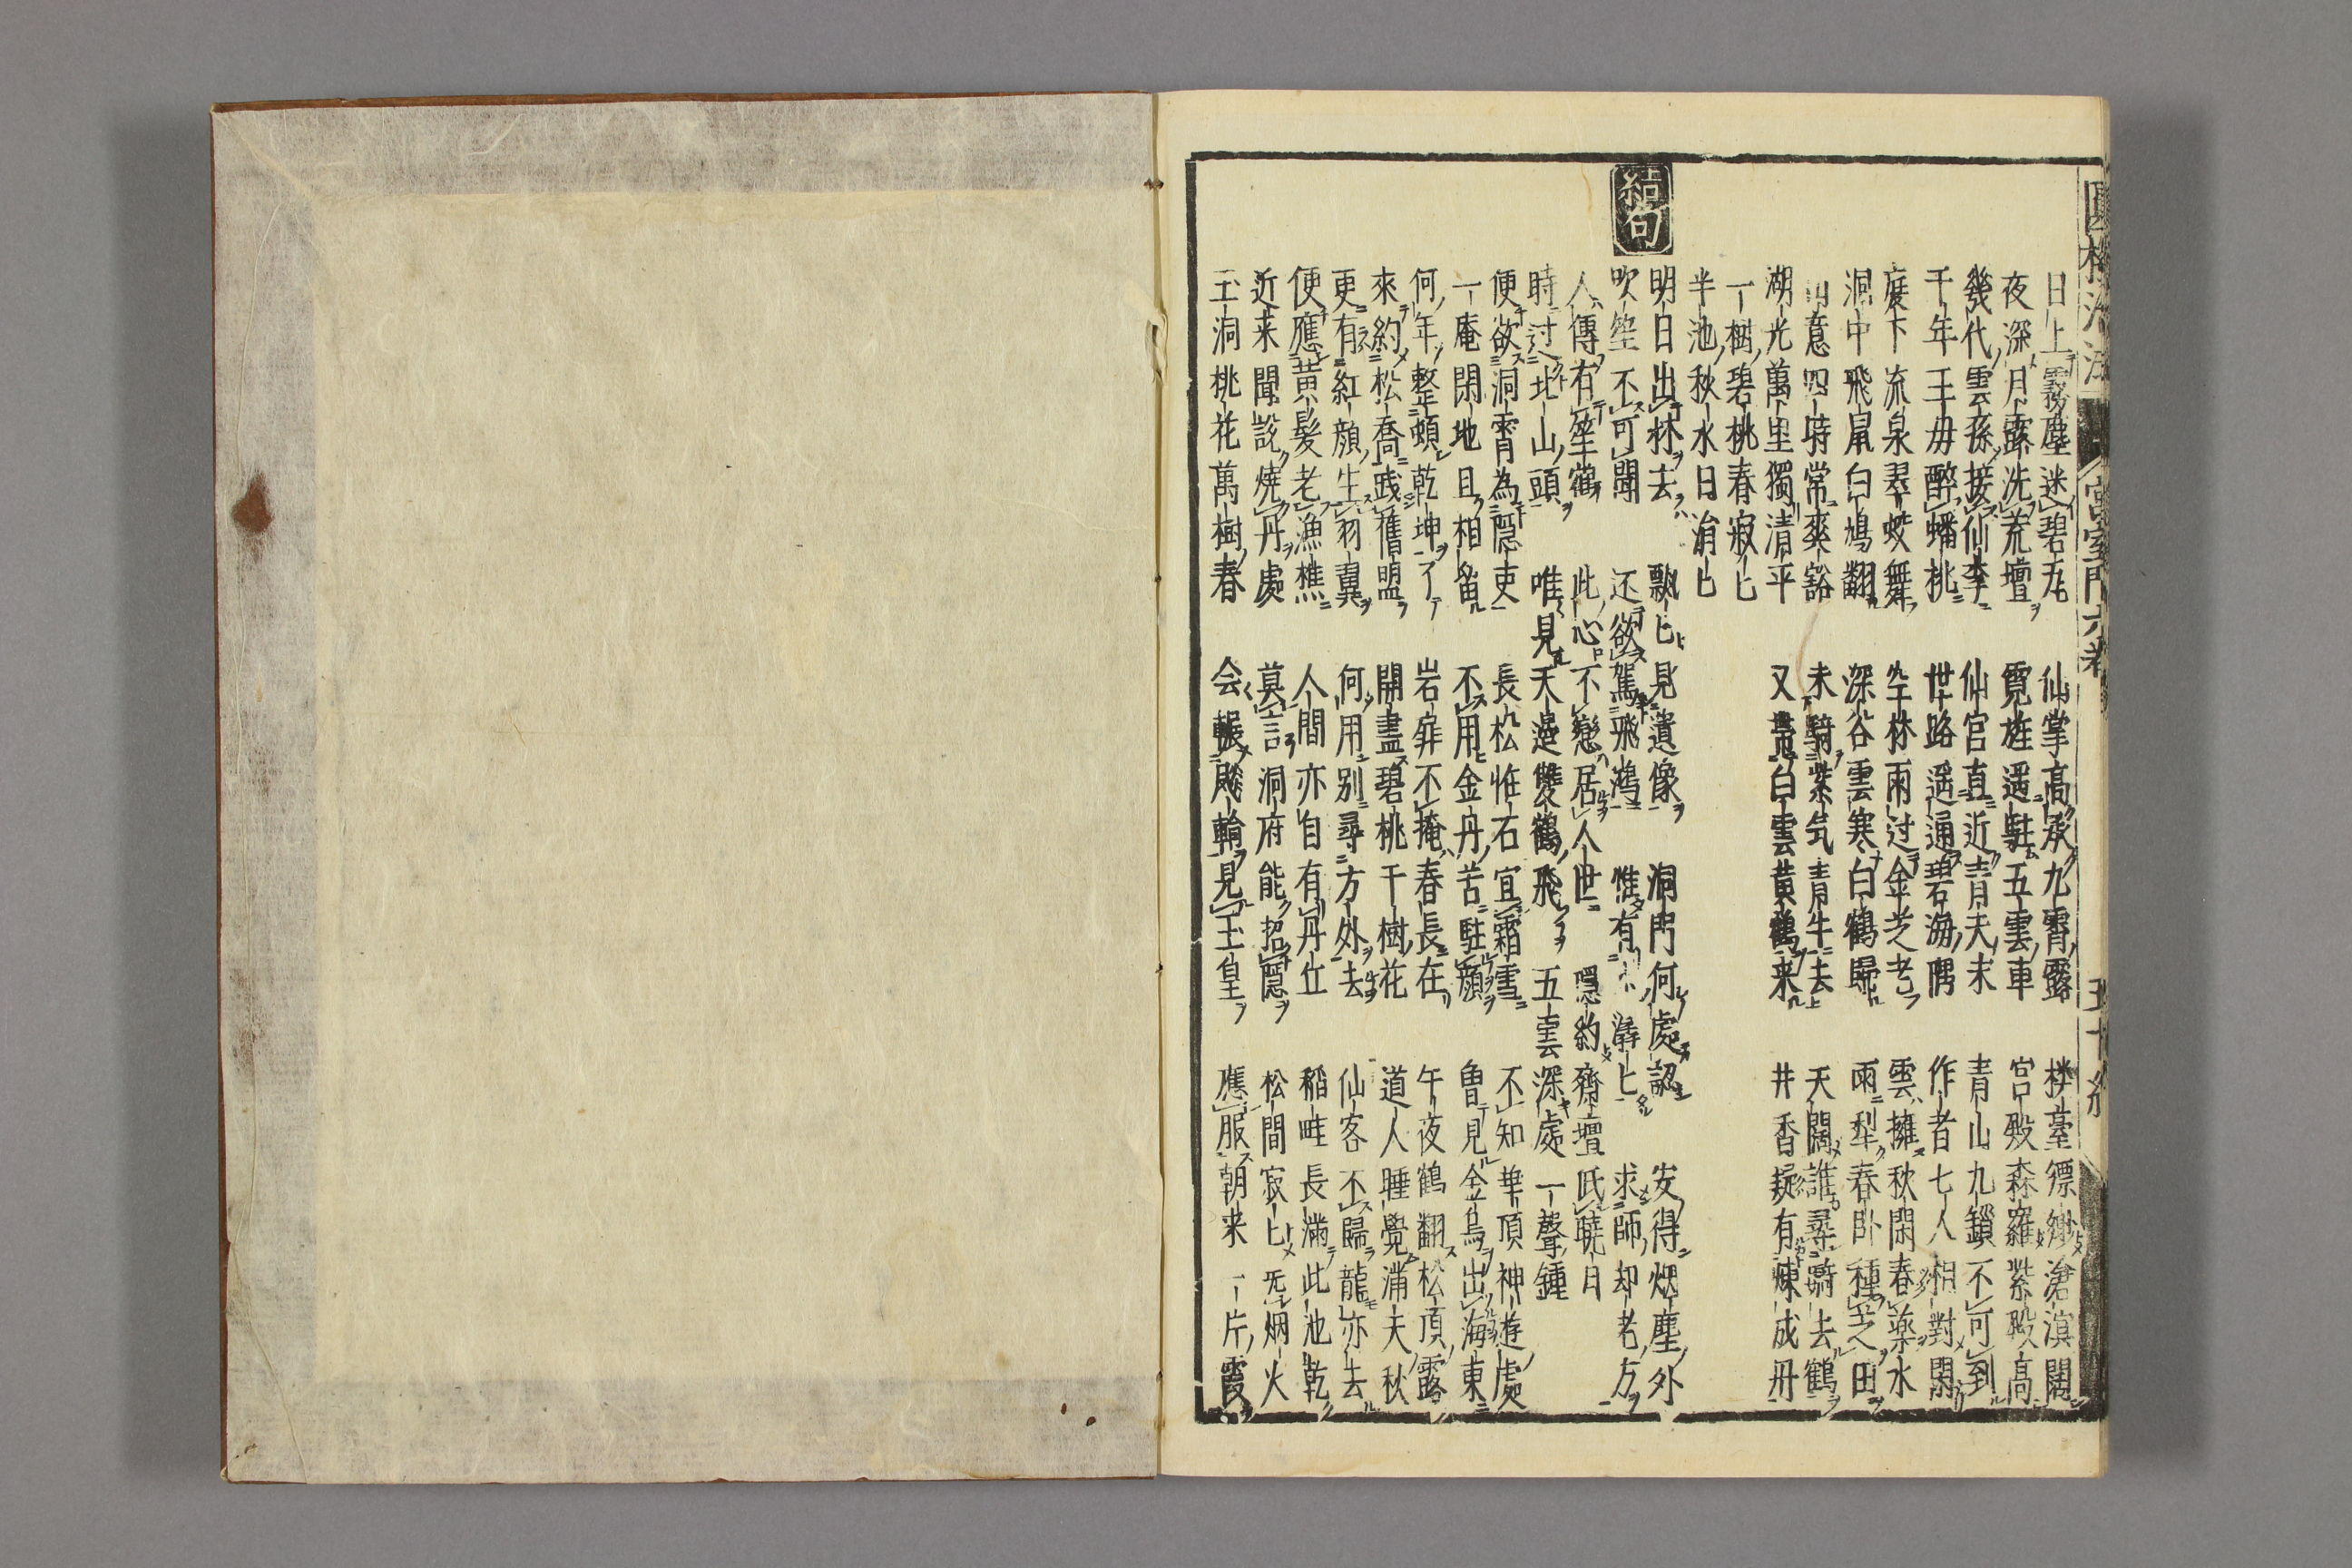 圓機活法 宮室門六卷 五十終
日上霧塵迷碧瓦 仙掌高承九霄露 楼臺縹緲滄溟闊
夜深月露洗荒壇 霓旌遥駐五雲車 宮殿森羅紫殿高
幾代雲孫接仙李 仙宮直近青天末 青山九鎖不可到
千年王母醉蟠桃 世路遥通碧海隅 作者七人相對閑
廈下流泉翠蛟舞 空林雨过金芝老 雲擁秋閑春藥水
洞中飛鼠白鳩翻 深谷雲寒白鶴歸 雨犁春卧種芝田
山意四時常爽豁 未騎紫気青牛去 天闊誰尋騎去鶴
湖光萬里獨清平 又貫白雲黄鶴来 井香擬有煉成丹
一樹碧桃春寂匕
半池秋水日涓匕
結句
明日出林去 飄匕見遺像 洞門何處認 安得烟塵外
吹笙不可聞 还欲駕飛鴻 惟有 潺匕 求師却老方
人傳有笙鶴 此心不戀居人世 隱約齊壇氏曉日
時过北山頭 唯見天邊雙鶴飛 五雲深處一聲鍾
便欲洞霄為隠吏 長松惟石宜霜雪 不知華頂神遊處
一庵閑地且相留 不用金丹苦駐顔 魯見金烏出海東
何年整頓乾坤了 岩扉不掩春長在 午夜鶴翻松頂露
來約松喬踐舊盟 開盡碧桃千樹花 道人睡覺滿天秋
更有紅顔生羽翼 何用别尋方外去 仙客不歸龍亦去
便應黄髪老漁樵 人間亦自有丹丘 稻畦長滿此池乾
近来聞説燒丹處 莫言洞府能招隱 松間寂匕旡烟火
玉洞桃花萬樹春 会騣飈輪見玉皇 應服朝来一片霞